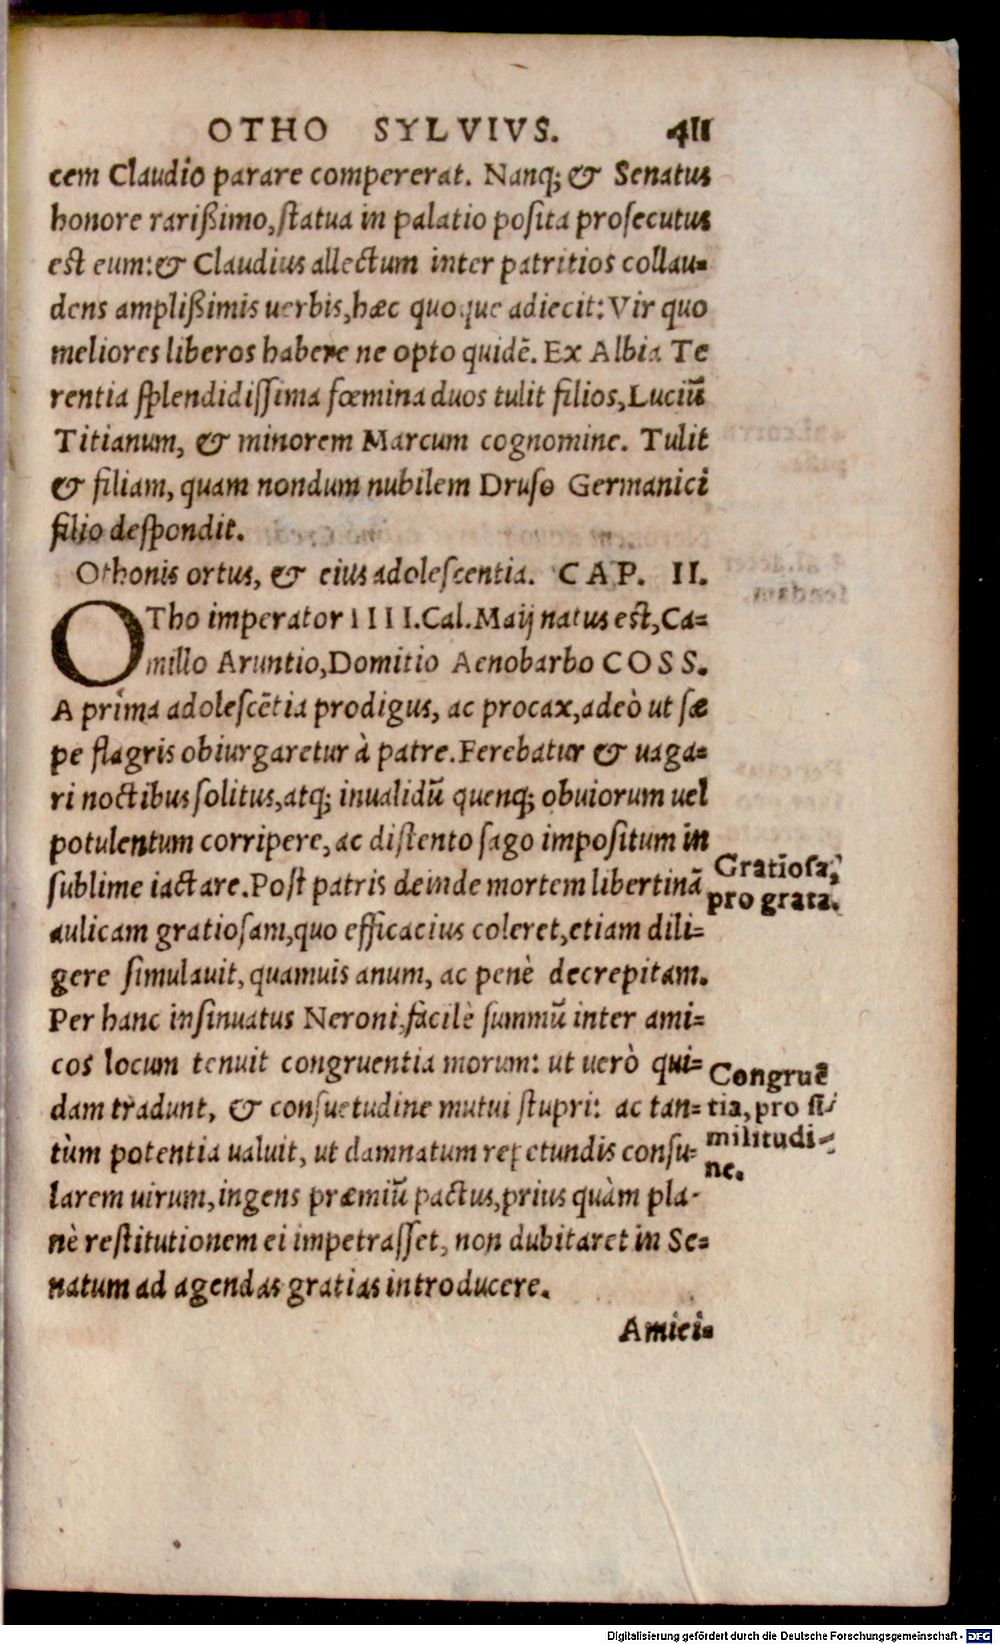 OTHO SYLVIVS. 411
cem Claudio parare compererat. Nanq; & Senatus
honore rarißimo, ſtatua in palatio poſita proſecutus
eſt eum: & Claudius allectum inter patritios collau=
dens amplißimis uerbis, hæc quoque adiecit: Vir quo
meliores liberos habere ne opto quidē. Ex Albia Te
rentia ſplendidiſſima fœmina duos tulit filios, Luciū
Titianum, & minorem Marcum cognomine. Tulit
& filiam, quam nondum nubilem Druſo Germanici
filio deſpondit.
Othonis ortus, & eius adoleſcentia. CAP. II.
OTho imperator IIII. Cal. Maij natus eſt, Ca=
millo Aruntio, Domitio Aenobarbo COSS.
A prima adoleſcētia prodigus, ac procax, adeò ut ſæ
pe flagris obiurgaretur à patre. Ferebatur & uaga=
ri noctibus ſolitus, atq; inualidū quenq; obuiorum uel
potulentum corripere, ac diſtento ſago impoſitum in
ſublime iactare. Poſt patris deinde mortem libertinā
aulicam gratioſam, quo efficacius coleret, etiam dili=
gere ſimulauit, quamuis anum, ac penè decrepitam.
Per hanc inſinuatus Neroni, facilè ſummū inter ami=
cos locum tenuit congruentia morum: ut uerò qui=
dam tradunt, & conſuetudine mutui ſtupri: ac tan=
tùm potentia ualuit, ut damnatum repetundis conſu=
larem uirum, ingens præmiū pactus, prius quàm pla-
nè reſtitutionem ei impetraſſet, non dubitaret in Se=
natum ad agendas gratias introducere.
Amici=
Gratioſa,
pro grata.
Congruē
tia, pro ſi
militudi=
ne.
Digitalisierung gefördert durch die Deutsche Forschungsgemeinschaft - DFG